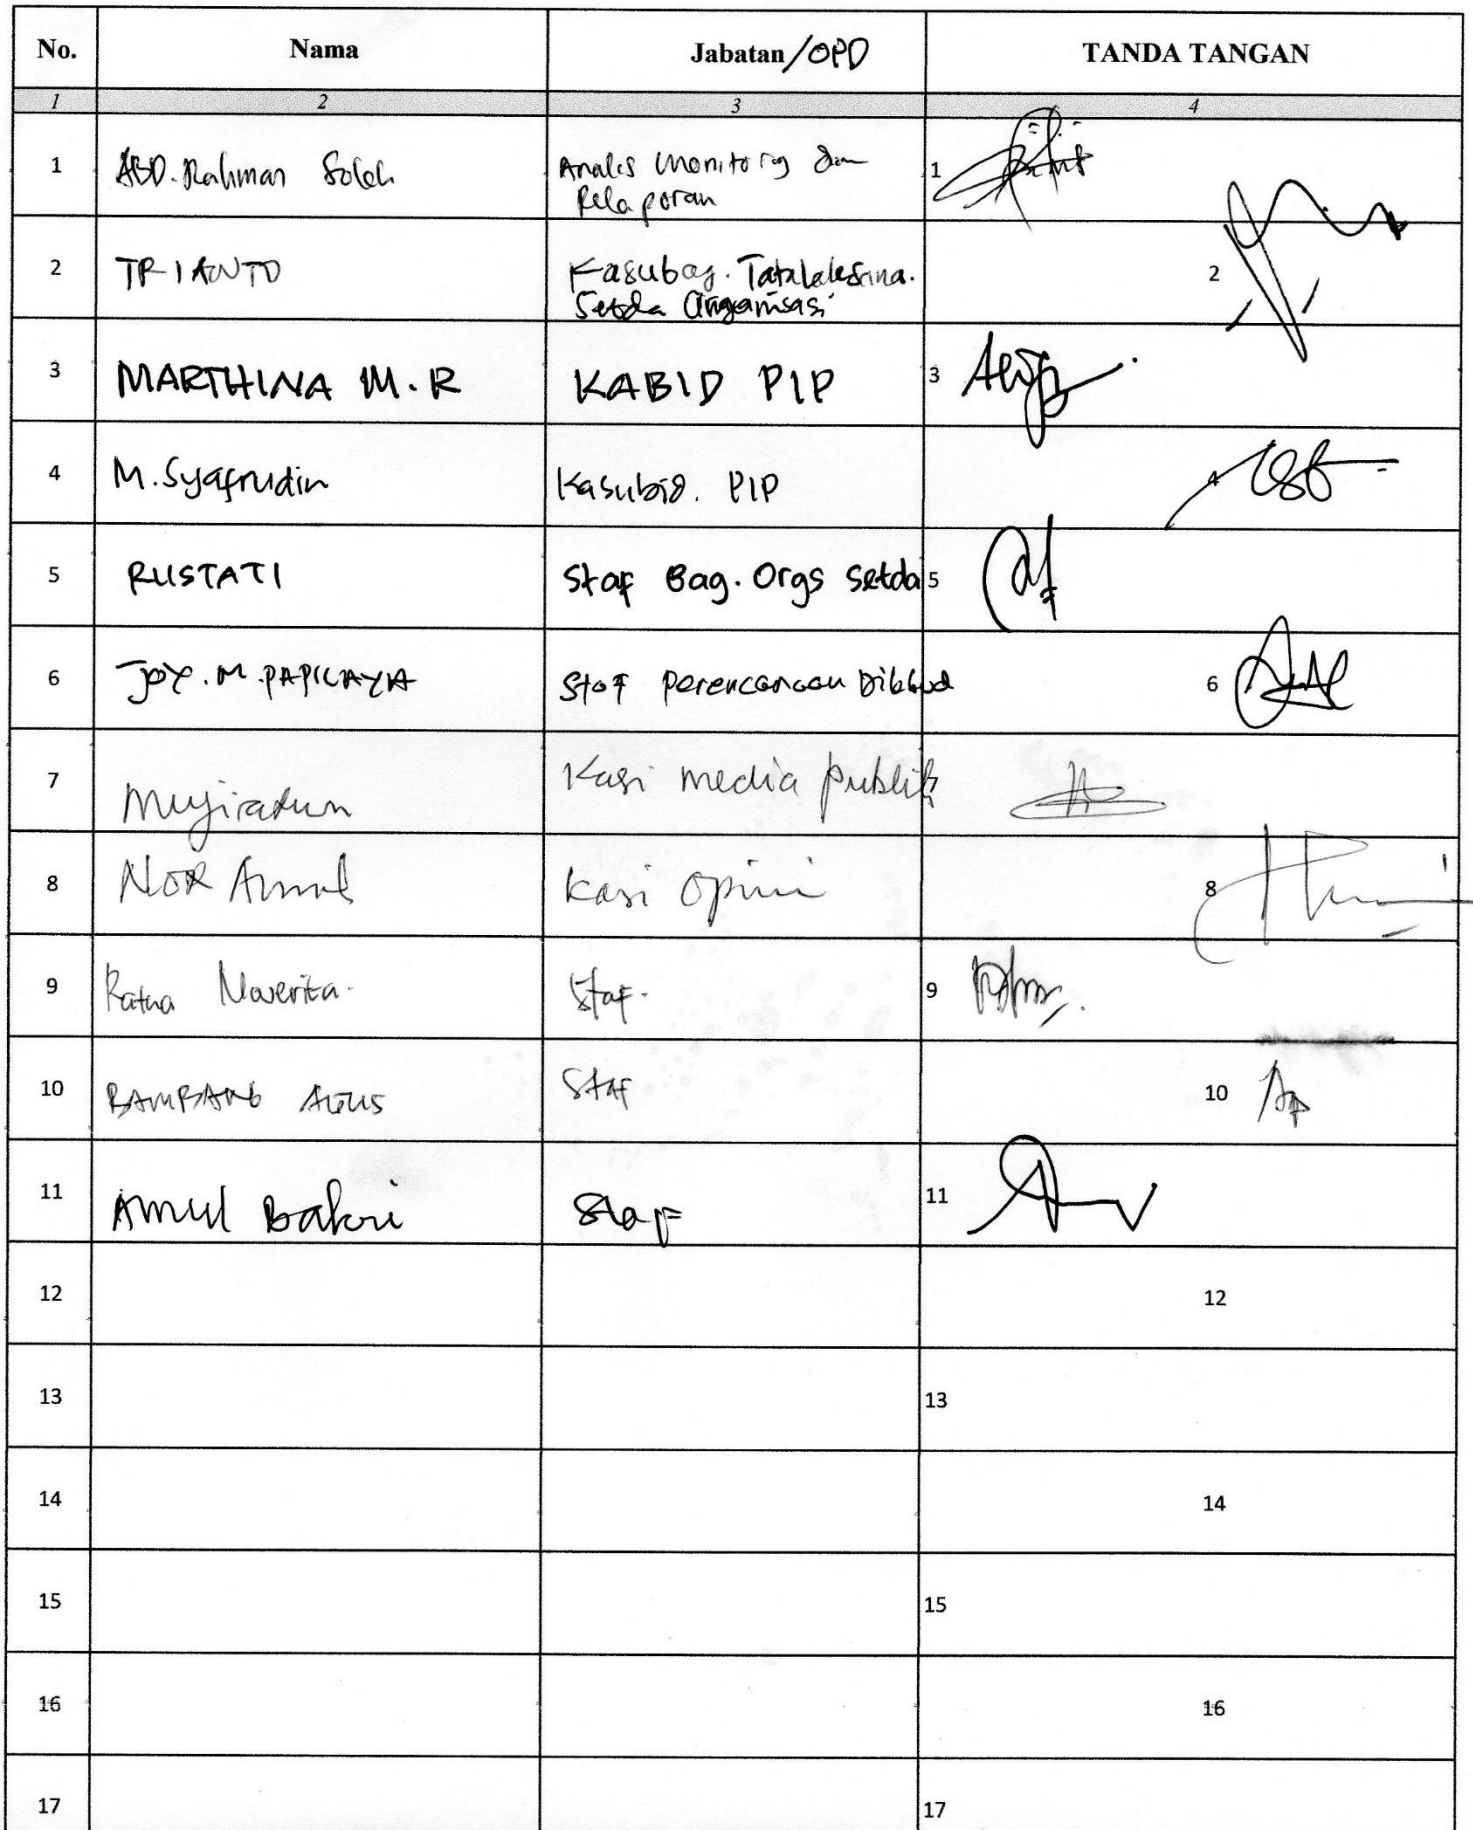 No. Nama Jabatan/OPD TANDA TANGAN
1 2 3 4
1 ABD. Rahman Soleh Analis Monitoring dan 1
Pelaporan
2 TRIANTO Kasubag. Tatalaksana. 2
Setda Organisasi
3 MARTHINA M.R KABID PIP 3
4 M. Syafrudin Kasubid. PIP 4
5 RUSTATI Staf Bag. Orgs Setda 5
6 JOY. M. PAPILAYA Staf Perencanaan Dikbud 6
7 Mujiratun Kasi media publik 7
8 NOR Kasi Opini 8
9 Ratna Noverita. Staf. 9
10 BAMBANG AGUS Staf 10
11 Amul Bakri Staf 11
12 12
13 13
14 14
15 15
16 16
17 17